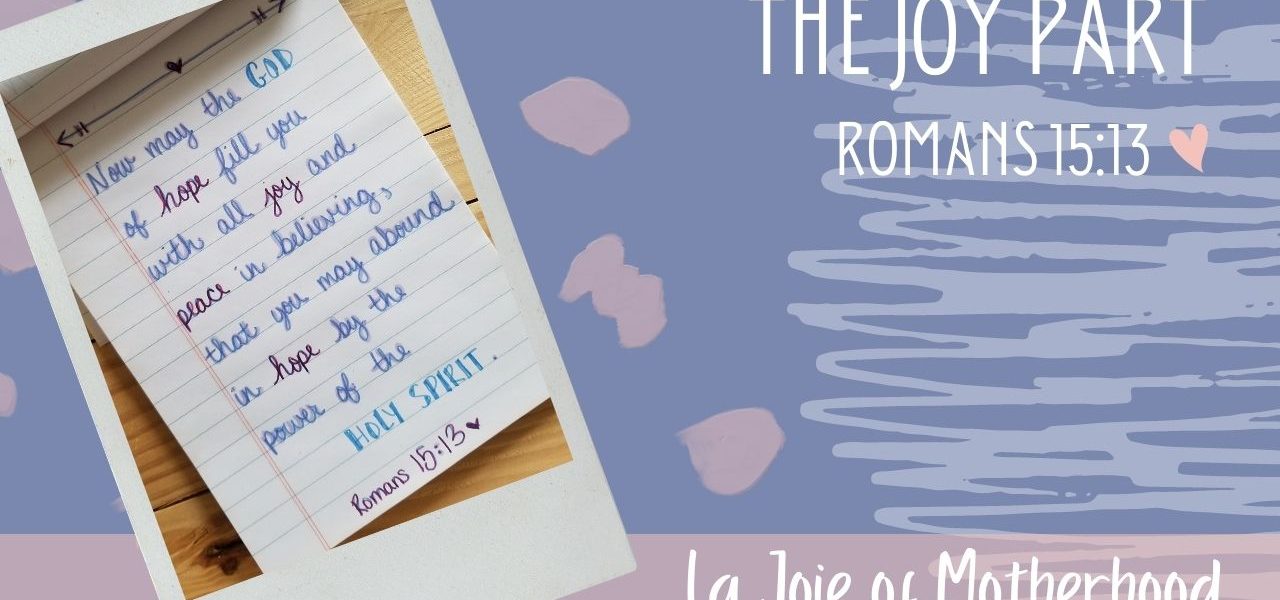 Now may the GOD
of hope fill you
with all joy and
peace in believing,
that you may abound
in hope by the
power of the
HOLY SPIRIT.
Romans 15:13
THE JOY PART
ROMANS 15:13
La Joie of Motherhood